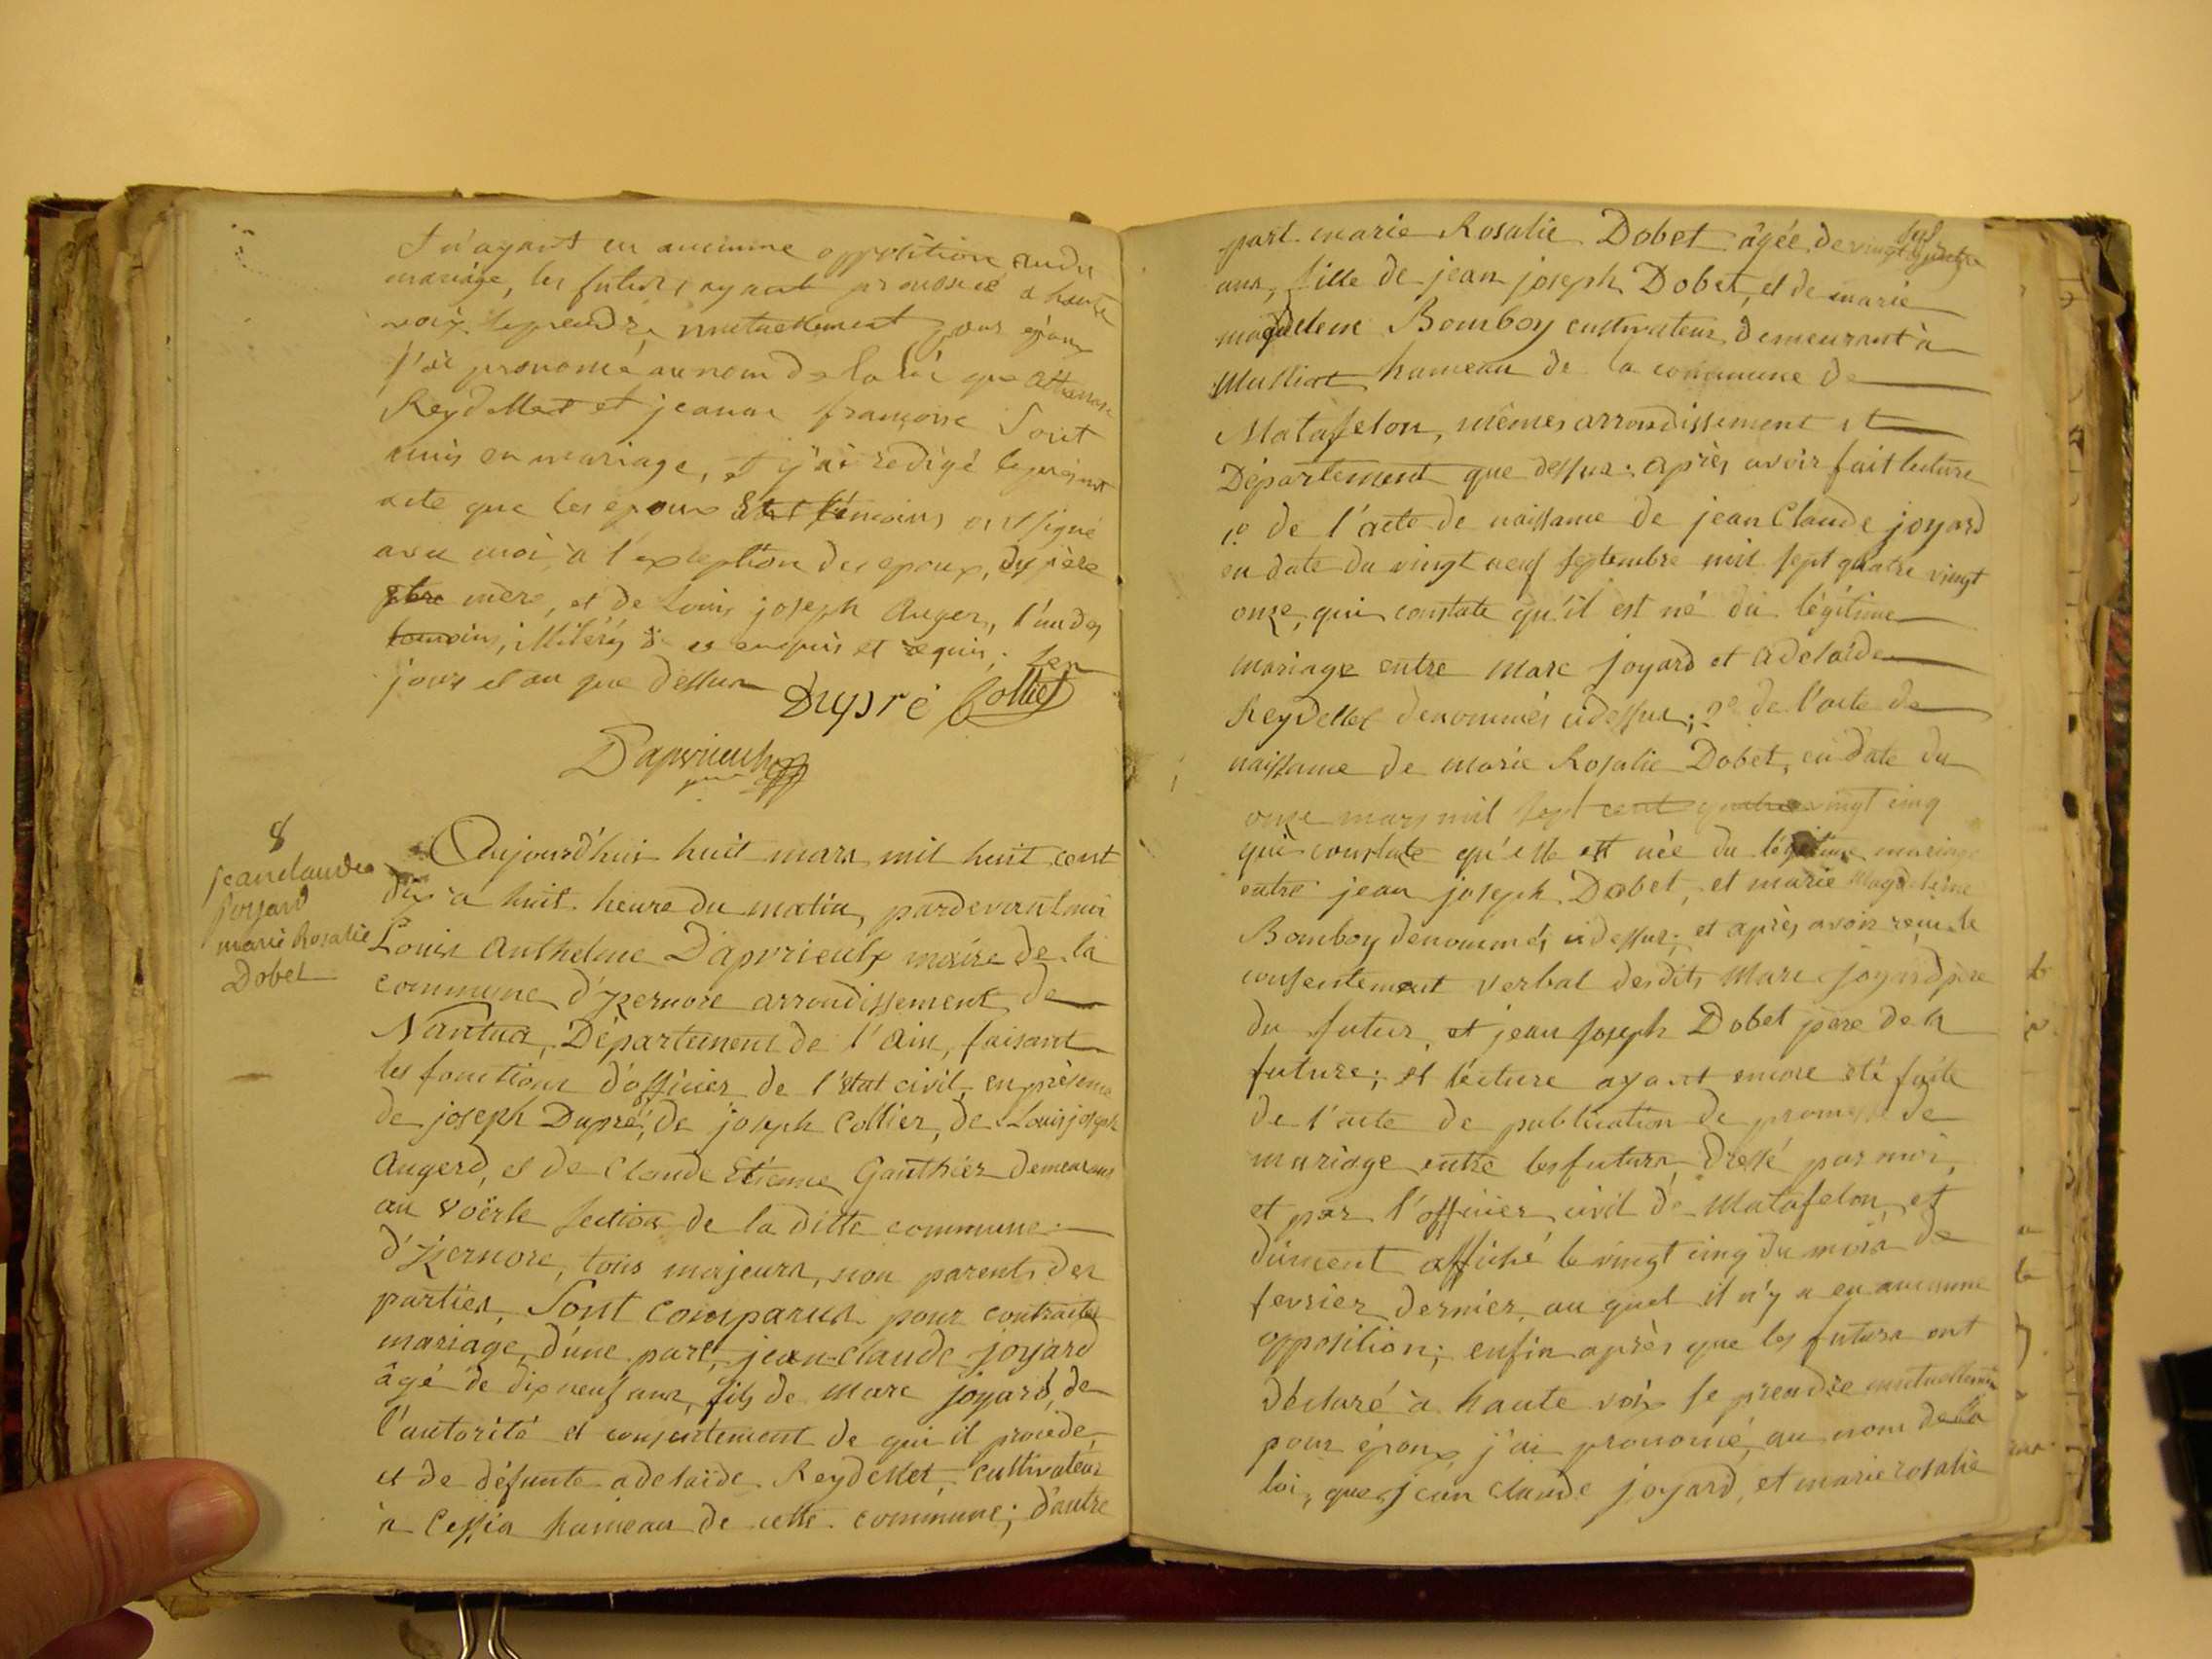 n'ayant eu aucunne opposition audit
mariage, les futurs ayant prononcé a haute
voix se prendre mutuellement pour époux
j'ai prononcé au nom de la loi que
Reydellet et jeanne françoise sont
unis en mariage, et j'ai redigé le present
acte que les époux et témoins ont signé
avec moi à l'exception des epoux, du père
mère, et de Louis joseph Auger, l'un des
temoins, illiterés de ce enquis et requis; les
jours et an que dessus Dupré Collier
Dapvrieulx
8
jean claude
joyard
marie Rosalie
Dobet
Aujourd'hui huit mars mil huit cent
dix a huit heure du matin, pardevant moi
Louis Anthelme Dapvrieulx maire de la
commune d'Izernore arrondissement de
Nantua, Département de l'Ain, faisant
les fonctions d'officier de l'état civil, en présence
de joseph Dupré, de joseph Collier, de Louis joseph
Augerd, et de Claude Etienne Gauthier demeurans
au voërle section de la ditte commune
d'Izernore, tous majeurs, non parents des
parties, Sont comparus pour contracter
mariage, d'une part, jean claude joyard
âgé de dix neuf ans, fils de Marc joyard, de
l'autorité et consentement de qui il procède,
et de défunte adelaïde Reydellet, cultivateur
a Cessia hameau de cette commune; d'autre
part marie Rosalie Dobet âgée de vingt quatre
ans, fille de jean joseph Dobet, et de marie
magdelene Bomboy cultivateur demeurant à
Mulliat hameau de la commune de
Matafelon, mêmes arrondissement et
Département que dessus: après avoir fait lecture
1º de l'acte de naissance de jean Claude joyard
en date du vingt neuf septembre mil sept quatre vingt
onze, qui constate qu'il est né du légitime
mariage entre Marc joyard et adelaïde
Reydellet denommés cidessus; 2º de l'acte de
naissance de marie Rosalie Dobet, en date du
onze mars mil sept cent quatre vingt cinq
qui constate qu'elle est née du légitime mariage
entre jean joseph Dobet, et marie Magdeleine
Bomboy denommés cidessus; et après avoir reçu le
consentement verbal desdits Marc joyard père
du futur, et jean joseph Dobet père de la
future; et lecture ayant encore été faite
de l'acte de publication de promesse de
mariage entre les futurs, dressé par moi,
et par l'officier civil de Matafelon, et
dûment affiché le vingt cinq du mois de
fevrier dernier, au quel il n'y a eu aucunne
opposition; enfin après que les futurs ont
déclaré a haute voix se prendre mutuellement
pour époux, j'ai prononcé, au nom de la
loi, que jean claude joyard, et marie rosalie